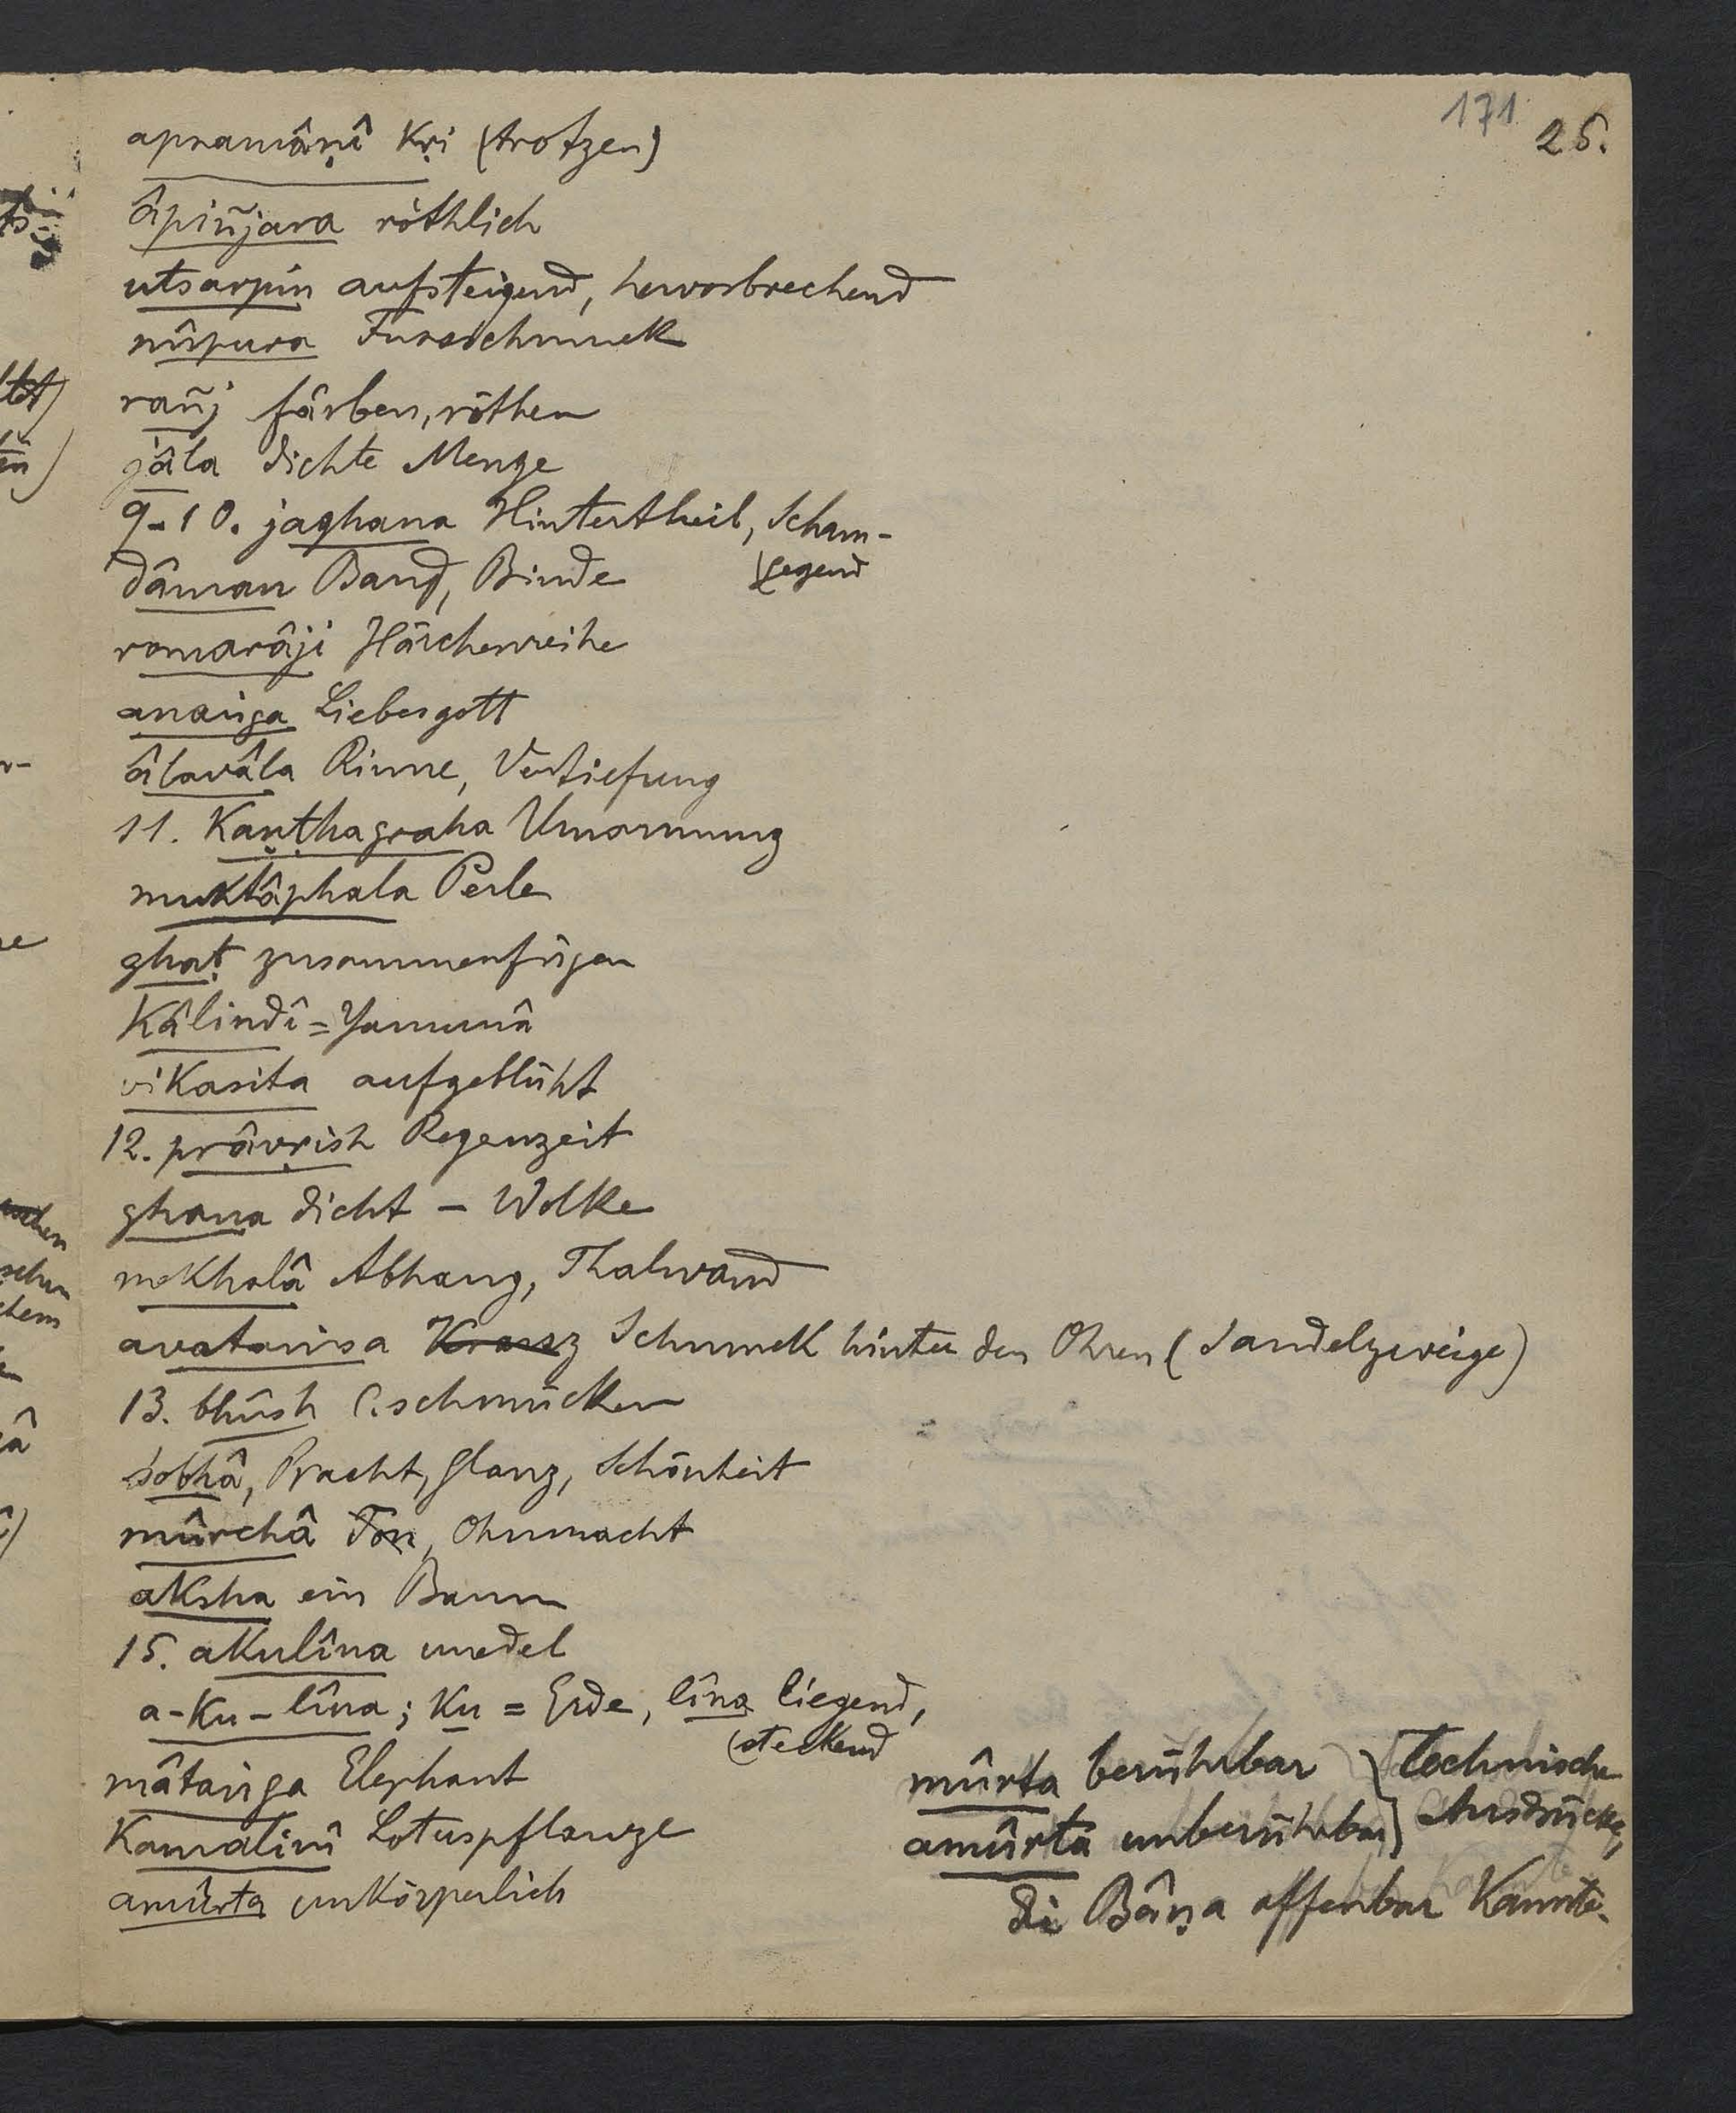 171 25.
apramâṇî kṛi (trotzen)
âpiñjara röthlich
utsarpin aufsteigend, hervorbrechend
nûpura Fussschmuck
rañj färben, röthen
jâla dichte Menge
9-10. jaghana Hintertheil, Scham-
(gegend
dâman Band, Binde
romarâji Härchenreihe
anaṅga Liebesgott
âlavâla Rinne, Vertiefung
11. Kaṇṭhagraha Umarmung
muktâphala Perle
ghaṭ zusammenfügen
Kâlindî = Yamunâ
vikasita aufgeblüht
12. prâvṛish Regenzeit
ghana dicht - Wolke
mekhalâ Abhang, Thalwand
avataṅsa Kranz Schmuck hinter den Ohren (Sandelzweige)
13. bhûsh C. schmücken
śobhâ, Pracht, Glanz, Schönheit
mûrchâ Ton, Ohnmacht
aksha ein Baum
15. akulîna unedel
a-ku-lîna; ku = Erde, lîna liegend,
(steckend
mâtaṅga Elephant
Kamalinî Lotuspflanze
amûrta unkörperlich
mûrta berührbar } technische
amûrta unberührbar } Ausdrücke,
die Bâṇa offenbar kannte.